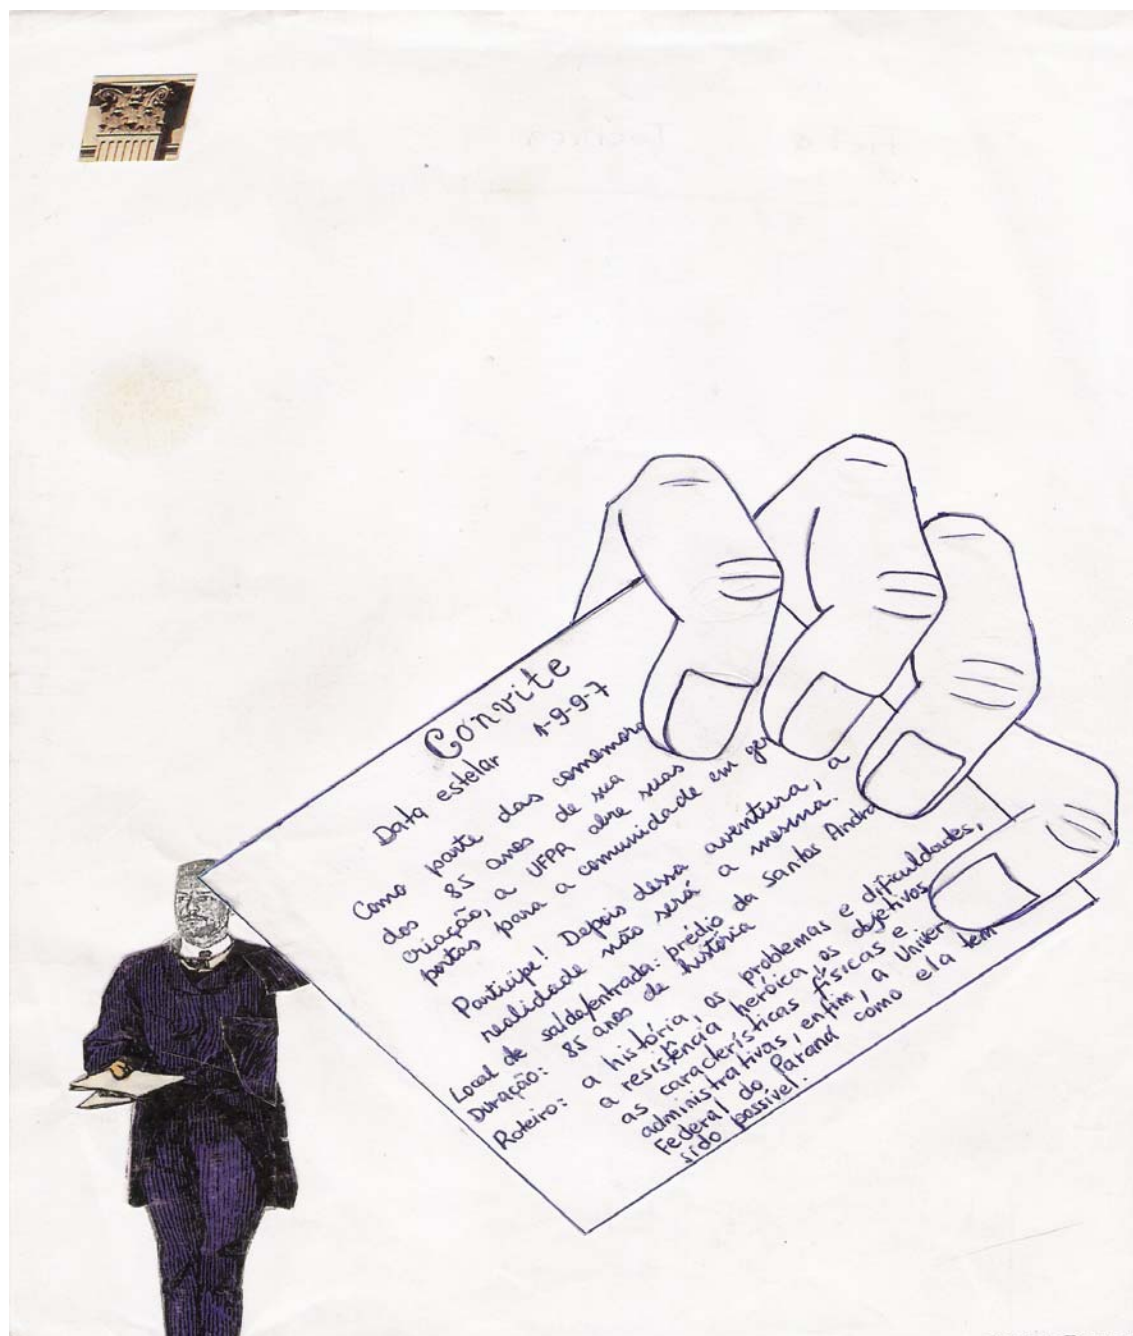 Convite
Data estelar 1-9-9-7
Como parte das comemora
dos 85 anos de sua
criação, a UFPR abre suas
portas para a comunidade em ger
Participe! Depois dessa aventura, a
realidade não será a mesma.
Local de saída/entrada: prédio da Santos Andra
Duração: 85 anos de história
Roteiro: a história, os problemas e dificuldades,
a resistência heróica os objetivos,
as características físicas e
administrativas, enfim, a Univer
Federal do Paraná como ela tem
sido possível.